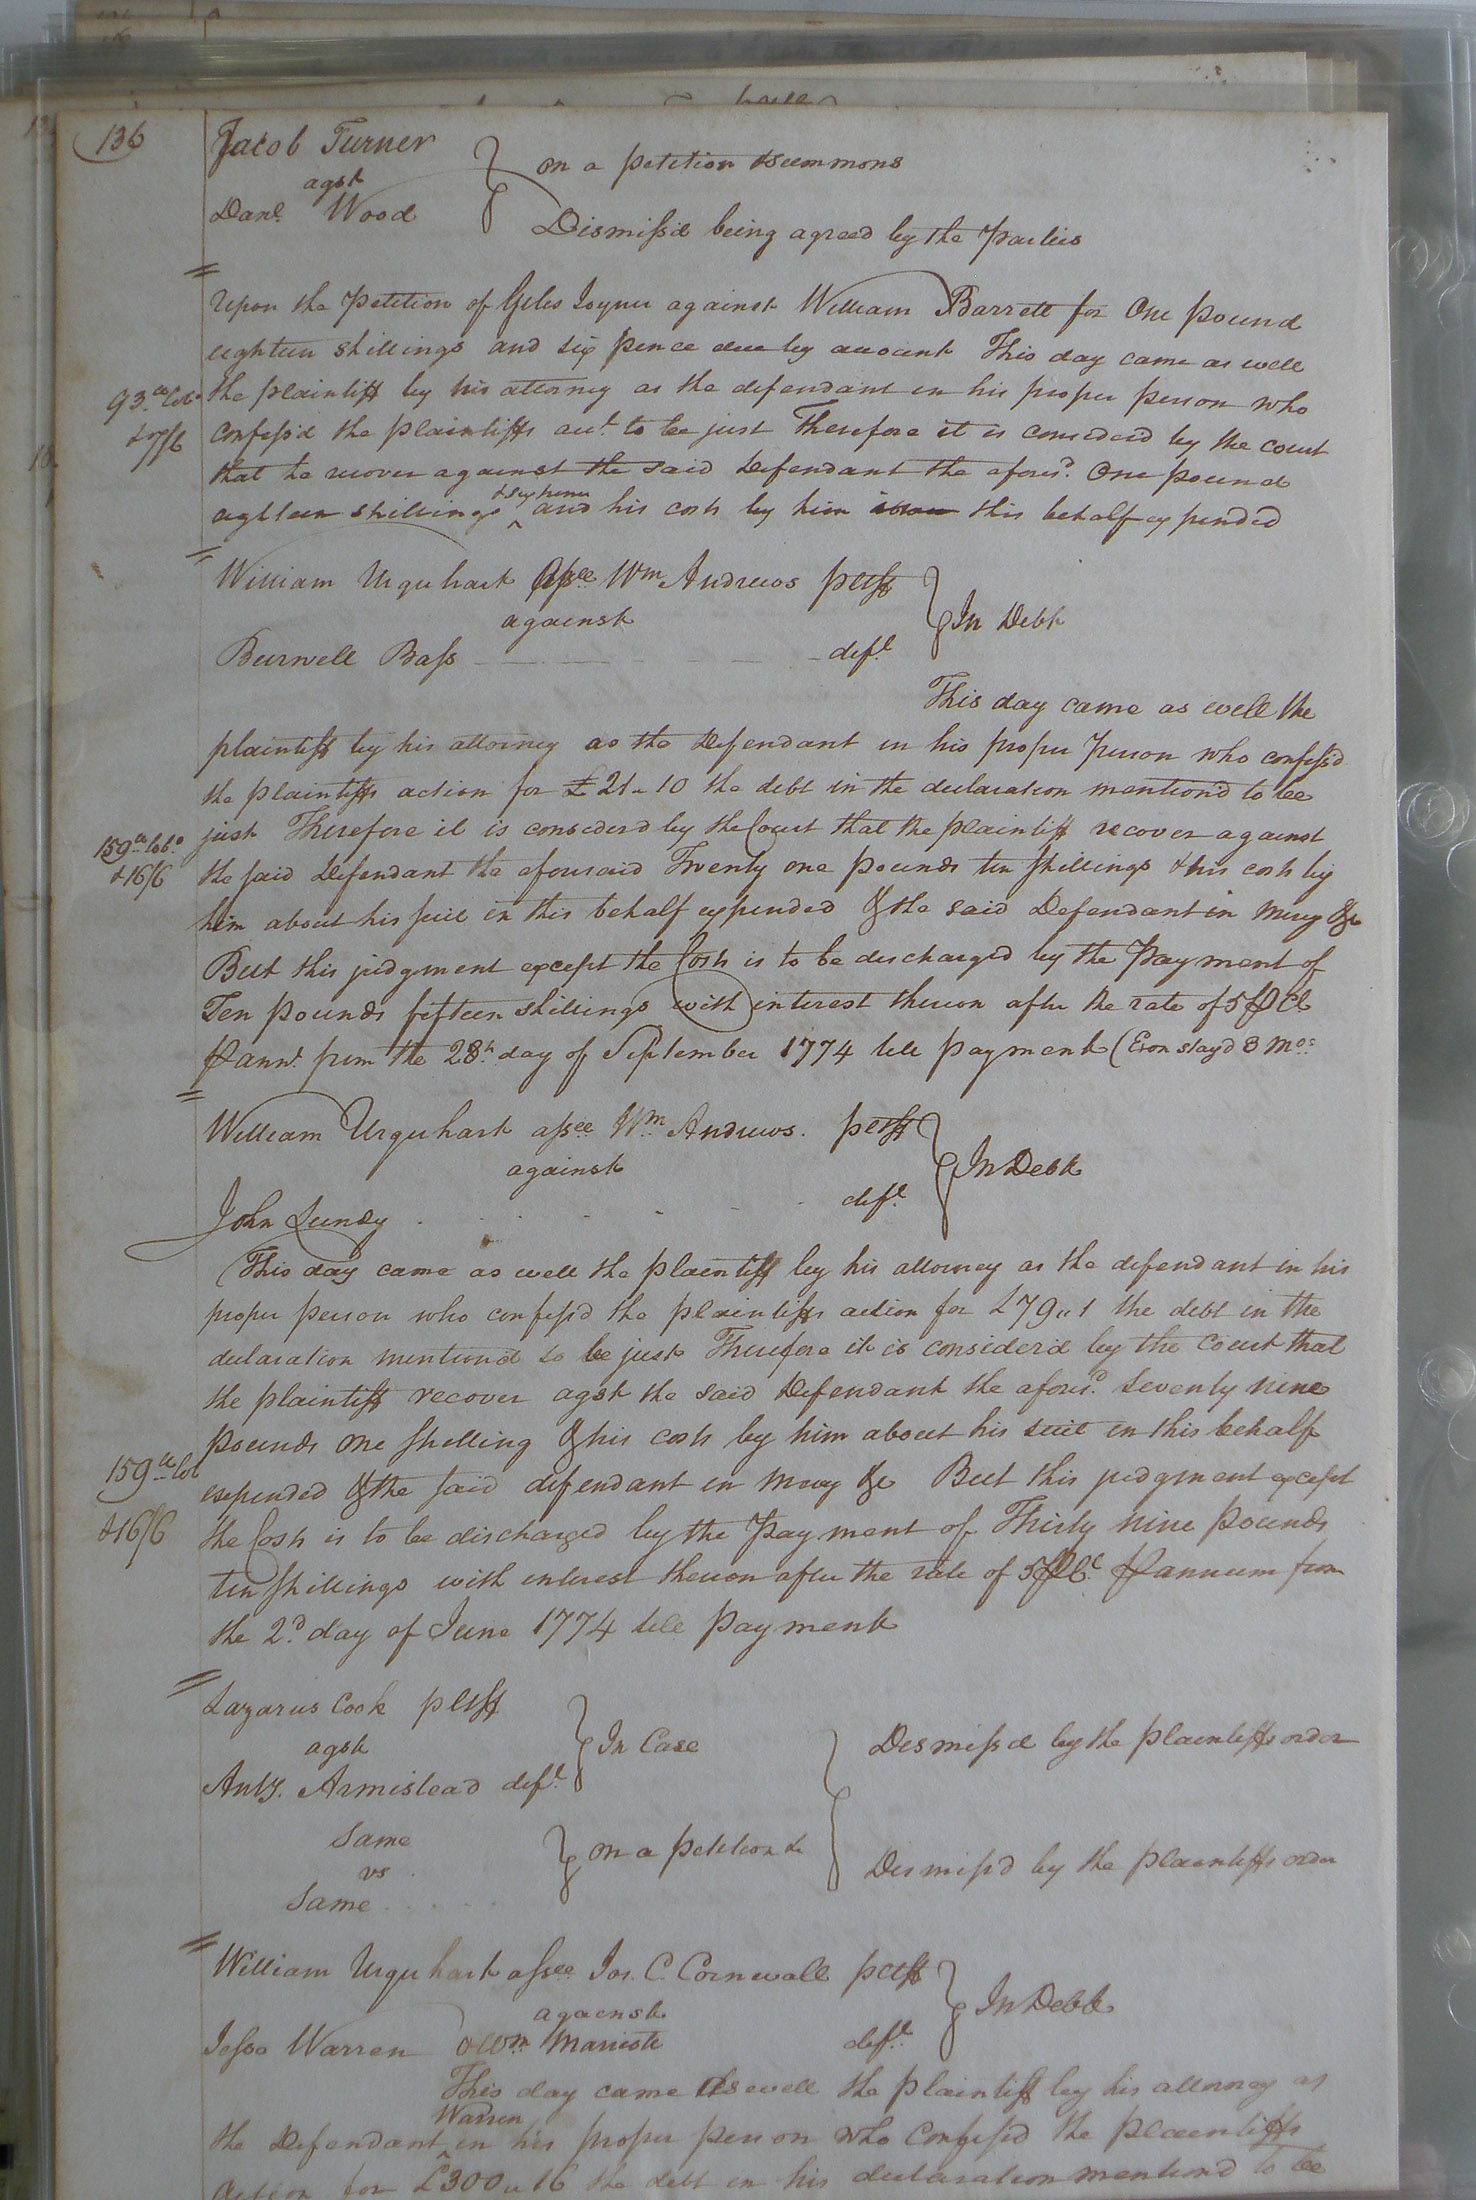 136
Jacob Turner
agst
Danl. Wood
on a petition & summons
Dismiss'd being agreed by the Parties
Upon the Petition of Giles Joyner against William Barrett for One pound
eighteen shillings and six pence due by account This day came as well
the plaintiff by his attorney as the defendant in his proper person who
confess'd the plaintiffs acct. to be just Therefore it is considerd by the court
that he recover against the said Defendant the aforesd. One pound
eighteen shillings & six pence and his costs by him in this behalf expended
93
& 7/6
William Urquhart Assee Wm Andrews pltff
against
Burwell Bass deft.
In Debt
This day came as well the
plaintiff by his attorney as the Defendant in his proper Person who confess'd
the plaintiffs action for £21..10 the debt in the declaration mention'd to be
just Therefore it is considerd by the Court that the plaintiff recover against
the said Defendant the aforesaid Twenty one pounds ten shillings & his costs by
him about his suit in this behalf expended & the said Defendant in mercy &c
But this judgment except the Costs is to be discharged by the Payment of
Ten pounds fifteen shillings with interest thereon after the rate of 5 P Ct
P annm. from the 28th day of September 1774 till payment (Exon stay'd 3 Mos
159
& 16/6
William Urquhart assee Wm. Andrews. pltff
against
John Lundy deft.
In Debt
This day came as well the plaintiff by his attorney as the defendant in his
proper person who confess'd the plaintiffs action for £79..1 the debt in the
declaration mention'd to be just Therefore it is consider'd by the Court that
the plaintiff recover agst the said Defendant the aforesd. Seventy nine
pounds one shilling & his costs by him about his suit in this behalf
expended & the said defendant in mercy &c But this judgment except
the Costs is to be discharged by the Payment of Thirty nine pounds
ten shillings with interest thereon after the rate of 5 P Ct. P annum from
the 2d. day of June 1774 till payment
159
& 16/6
Lazarus Cook pltff
agst
Anty. Armistead deft.
In Case
Dismiss'd by the plaintiffs order
Same
vs
Same
on a petition &c
Dismiss'd by the plaintiffs order
William Urquhart assee Jos. C. Cornwall pltff
against
Jesse Warren & Wm. Marriott deft.
In Debt
This day came as well the plaintiff by his attorney as
the Defendant Warren in his proper person who confess'd the plaintiffs
action for £300..16 the debt in his declaration mention'd to be